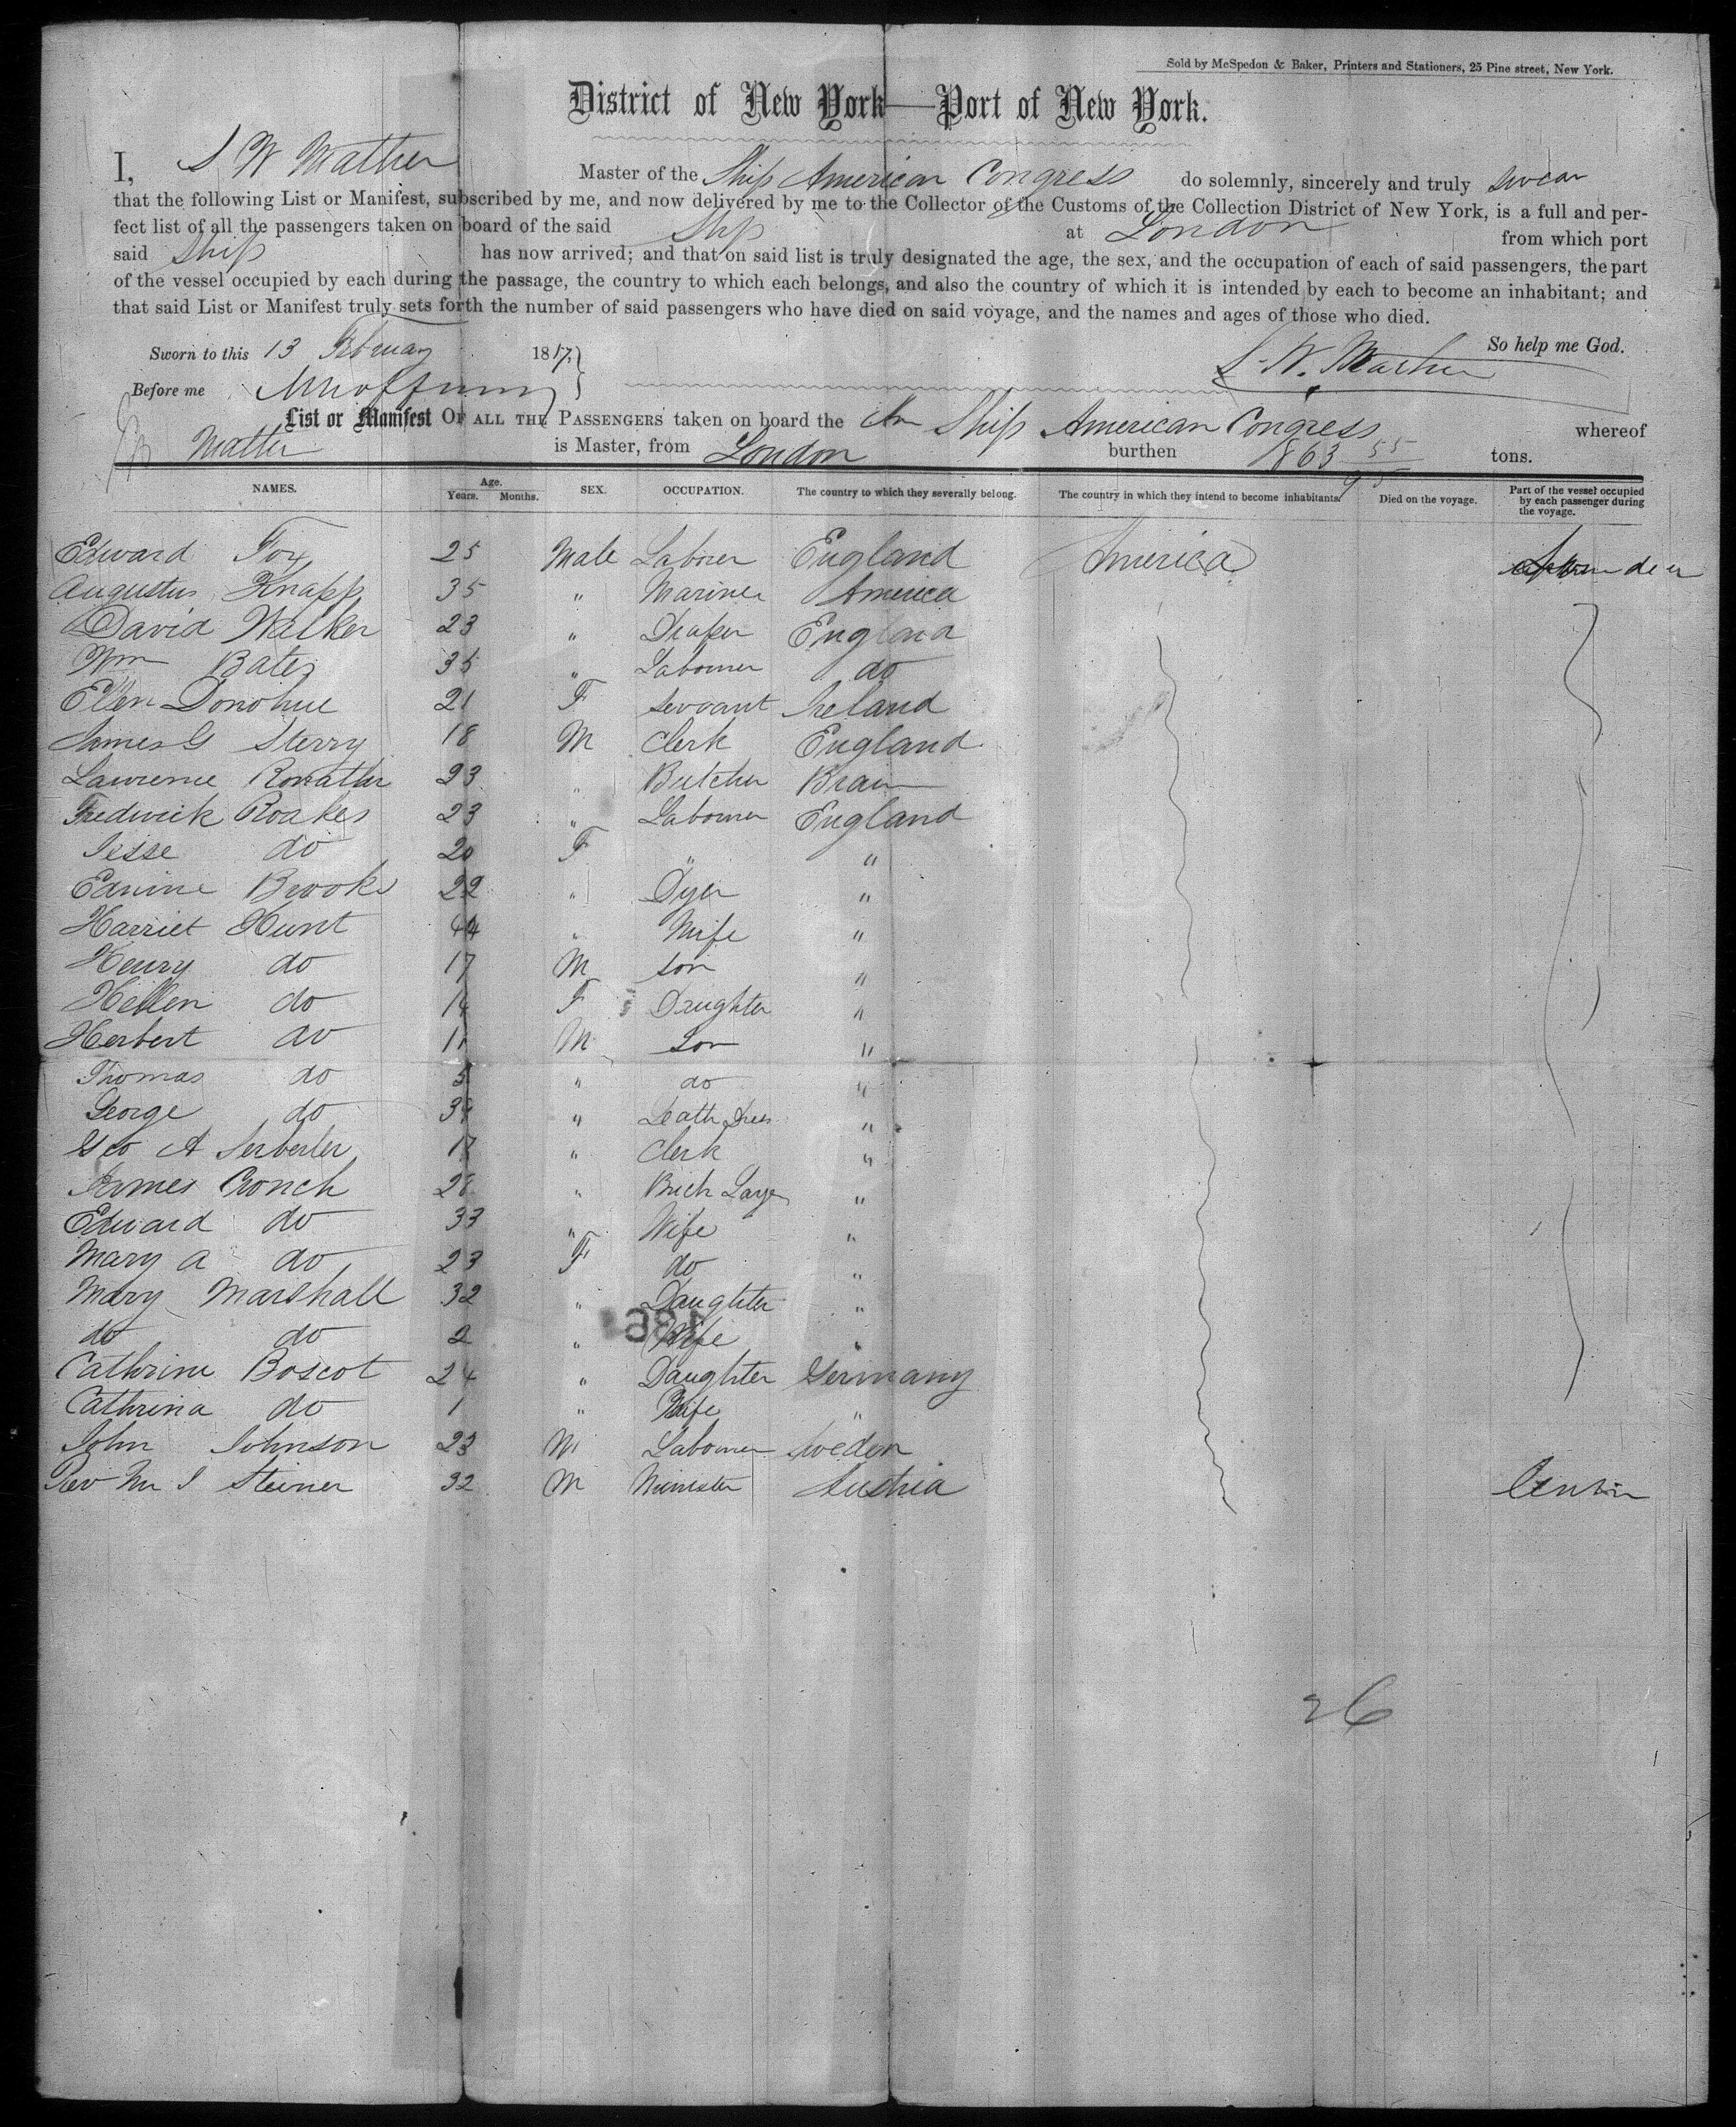 Sold by McSpedon & Baker, Printers and Stationers, 25 Pine street, New York.
District of New York—Port of New York.
I, S W Mather Master of the Ship American Congress do solemnly, sincerely and truly swear
that the following List or Manifest, subscribed by me, and now delivered by me to the Collector of the Customs of the Collection District of New York, is a full and per-
fect list of all the passengers taken on board of the said Ship at London from which port
said Ship has now arrived; and that on said list is truly designated the age, the sex, and the occupation of each of said passengers, the part
of the vessel occupied by each during the passage, the country to which each belongs, and also the country of which it is intended by each to become an inhabitant; and
that said List or Manifest truly sets forth the number of said passengers who have died on said voyage, and the names and ages of those who died.
So help me God.
Sworn to this 13 February 18
S. W. Mather
Before me
List or Manifest OF ALL THE PASSENGERS taken on board the Am Ship American Congress whereof
Mather is Master, from London burthen 863 55/95 tons.
NAMES. Age. Years. Months. SEX. OCCUPATION. The country to which they severally belong. The country in which they intend to become inhabitants. Died on the voyage. Part of the vessel occupied by each passenger during the voyage.
Edward Fox 25 Male Laborer England America
Augustus Knapp 35 " Mariner America
David Walker 23 " Draper England
Wm Bates 35 " Labourer do
Ellen Donohue 21 F Servant Ireland
James G Sterry 18 M Clerk England
Lawrence 23 " Butcher
Frederick Roakes 23 " Labourer England
Jesse do 20 F " "
Edwine Brooks 22 " Dyer "
Harriet Hunt 44 " Wife "
Henry do 17 M Son "
Hellen do 14 F Daughter "
Herbert do 11 M Son "
Thomas do 5 " do "
George do 39 " "
Geo A 17 " Clerk "
James Cronch 28 " Brick Layer "
Edward do 33 " Wife "
Mary A do 23 F do "
Mary Marshall 32 " Daughter "
do do 2 " Wife "
Cathrine Boscot 24 " Daughter Germany
Cathrina do 1 " Wife "
John Johnson 23 M Labourer Sweden
Rev Mr J Steiner 32 M Minister Austria Cabin
26